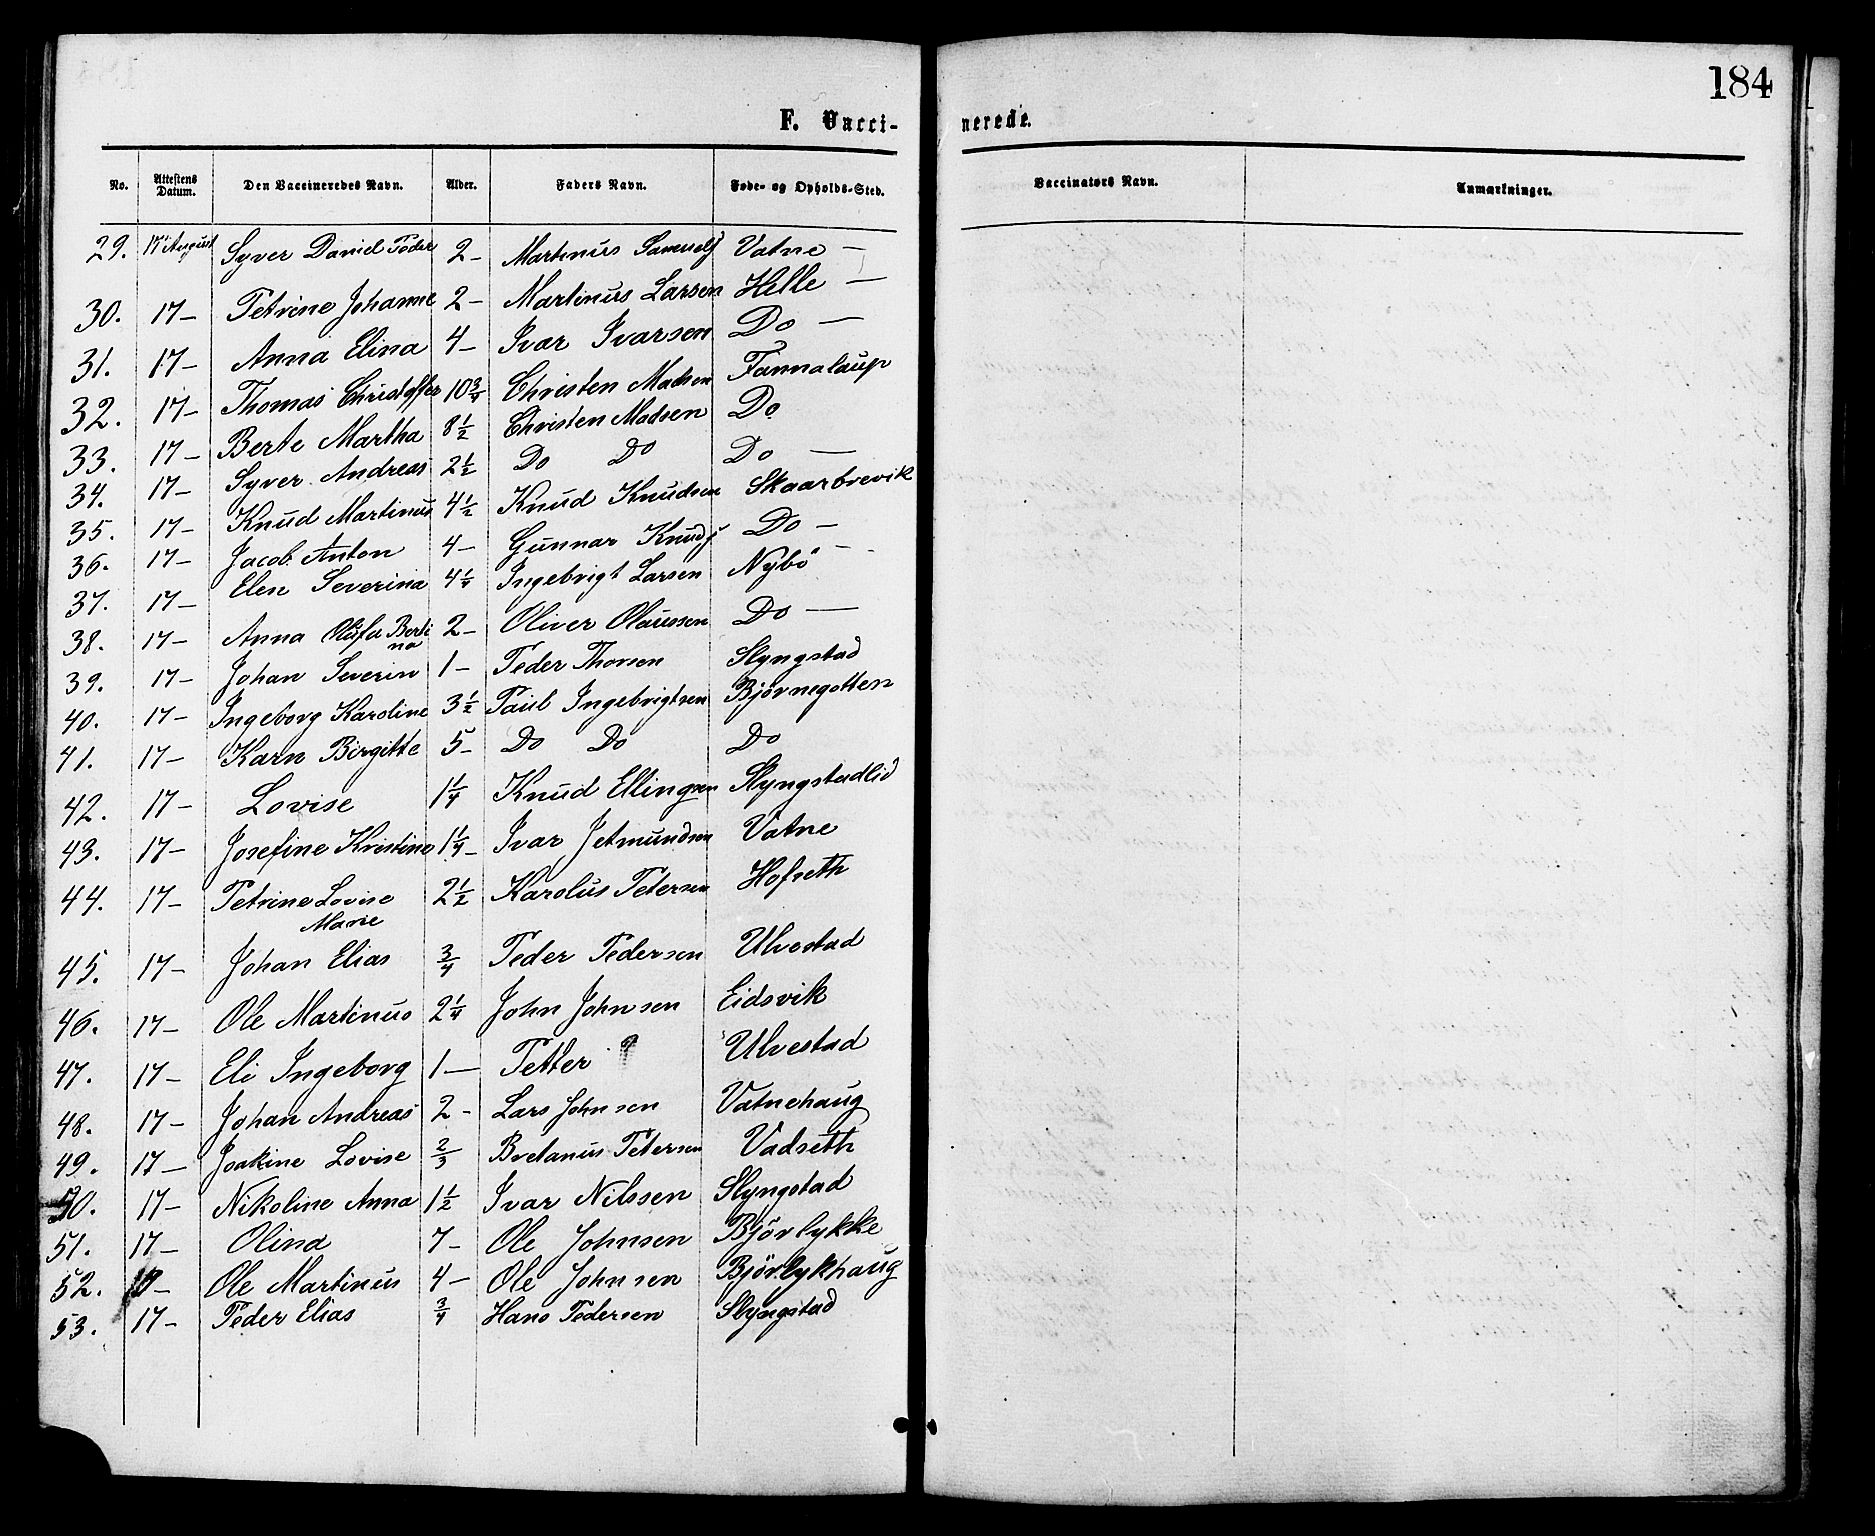 184
F. Vaccinerede.
No. Attestens Datum. Den Vaccineredes Navn. Alder. Faders Navn. Føde- og Opholds-Sted. Vaccinators Navn. Anmærkninger.
29. 17 August Syver Daniel Peder 2 - Martinus Samuels Vatne -
30. 17 - Petrine Johanne 2 - Martinus Larsen Helle -
31. 17 - Anna Elina 4 - Ivar Ivarsen Do -
32. 17 - Thomas Christoffer 10 3/4 Christen Madsen Fannalaup
33. 17 - Berte Martha 8 1/2 Christen Madsen Do
34. 17 - Syver Andreas 2 1/2 Do Do Do -
35. 17 - Knud Martinus 4 1/2 Knud Knudsen Skaarbrevik
36. 17 - Jacob Anton 4 - Gunnar Knuds Do -
37. 17 - Elen Severina 4 1/4 Ingebrigt Larsen Nybö -
38. 17 - Anna Olufa Berti 2 - Oliver Olaussen Do -
na
39. 17 - Johan Severin 1 - Peder Thorsen Slyngstad
40. 17 - Ingeborg Karoline 3 1/2 Paul Ingebrigtsen Bjørnegotten
41. 17 - Karn Birgitte 5 - Do Do Do
42. 17 - Lovise 1 1/4 Knud Ellingsen Slyngstadlid
43. 17 - Josefine Kristine 1 1/4 - Ivar Jetmundsen Vatne
44. 17 - Petrine Lovise 2 1/2 Karolus Petersen Hofseth
Marie
45. 17 - Johan Elias 3/4 Peder Pedersen Ulvestad
46. 17 - Ole Martinus 2 1/4 John Johnsen Eidsvik
47. 17 - Eli Ingeborg 1 - Petter ? Ulvestad
48. 17 - Johan Andreas 2 - Lars Johnsen Vatnehaug
49. 17 - Joakine Lovise 2/3 Bretanus Petersen Vadseth
50. 17 - Nikoline Anna 1 1/2 Ivar Nilssen Slyngstad
51. 17 - Olina 7 - Ole Johnsen Bjørlykke
52. - Ole Martinus 4 - Ole Johnsen Bjørlykhaug
53. 17 - Peder Elias 3/4 Hans Pedersen Slyngstad